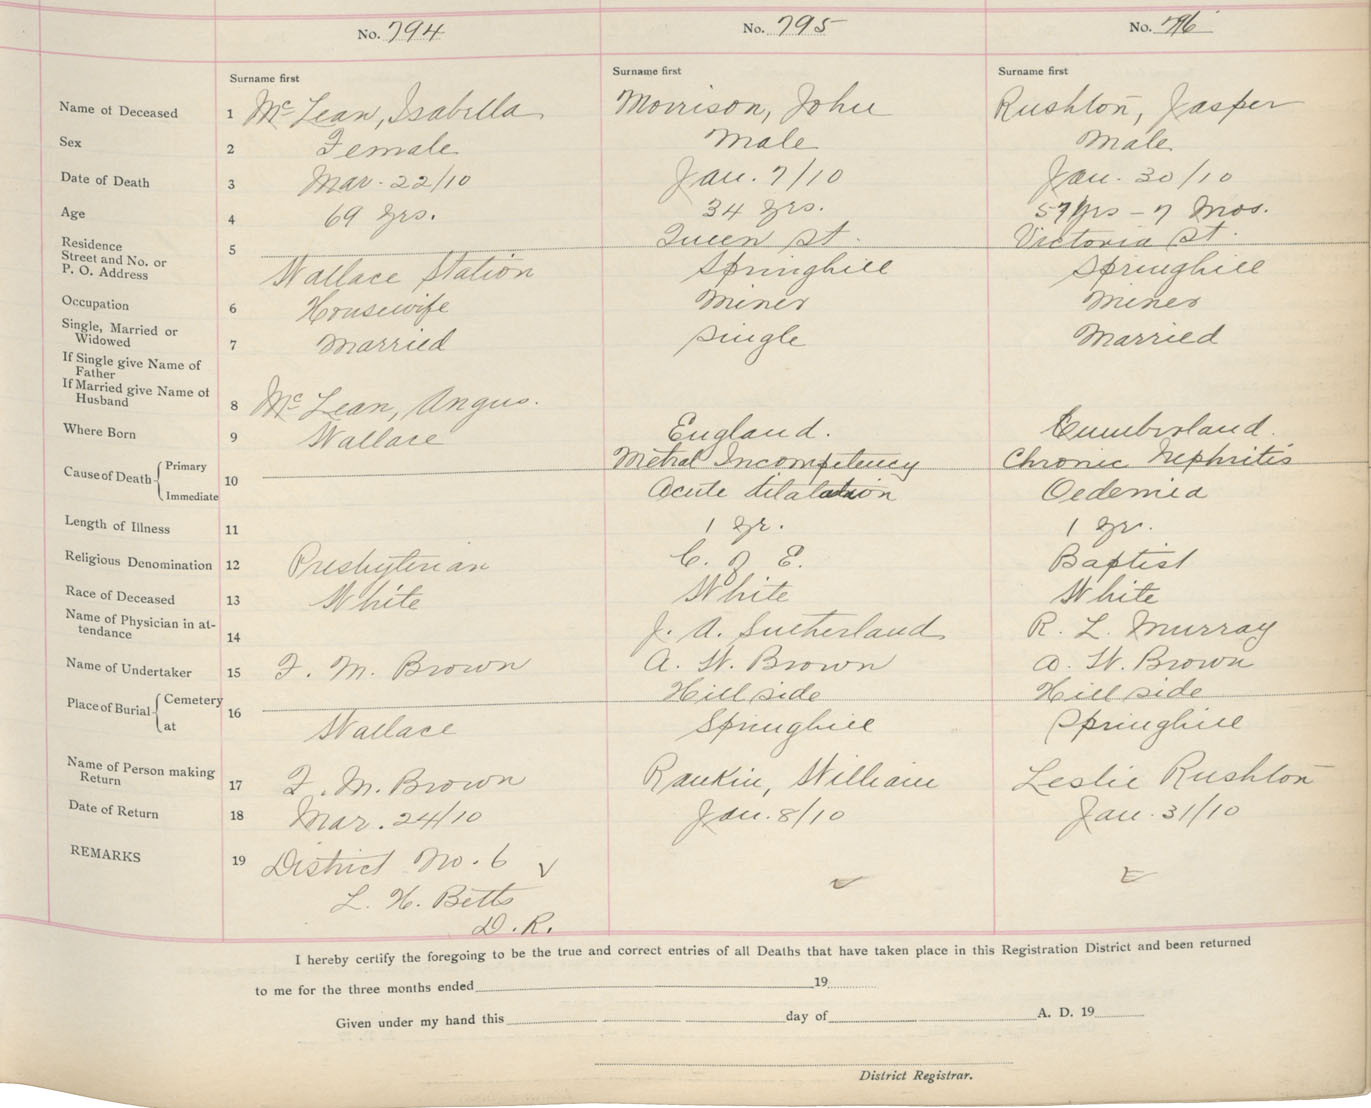 No. 794 No. 795 No. 796
Surname first Surname first Surname first
Name of Deceased 1 McLean, Isabella Morrison, John Rushton, Jasper
Sex 2 Female Male Male
Date of Death 3 Mar. 22/10 Jan. 7/10 Jan. 30/10
Age 4 69 yrs. 34 yrs. 57 yrs - 7 Mos.
Residence 5 Queen St. Victoria St.
Street and No. or
P. O. Address Wallace Station Springhill Springhill
Occupation 6 Housewife Miner Miner
Single, Married or
Widowed 7 Married Single Married
If Single give Name of
Father
If Married give Name of
Husband 8 McLean, Angus.
Where Born 9 Wallace England. Cumberland.
Cause of Death Primary 10 Metral Incompetency Chronic Nephritis
Immediate Acute dilatation Oedemia
Length of Illness 11 1 yr. 1 yr.
Religious Denomination 12 Presbyterian C. of E. Baptist
Race of Deceased 13 White White White
Name of Physician in at-
tendance 14 J. A. Sutherland R. L. Murray
Name of Undertaker 15 F. M. Brown A. W. Brown A. W. Brown
Place of Burial Cemetery 16 Hillside Hillside
at Wallace Springhill Springhill
Name of Person making
Return 17 F. M. Brown Rankin, William Leslie Rushton
Date of Return 18 Mar. 24/10 Jan. 8/10 Jan. 31/10
REMARKS 19 District No. 6
L. H. Betts
D. R.
I hereby certify the foregoing to be the true and correct entries of all Deaths that have taken place in this Registration District and been returned
to me for the three months ended 19
Given under my hand this day of A. D. 19
District Registrar.